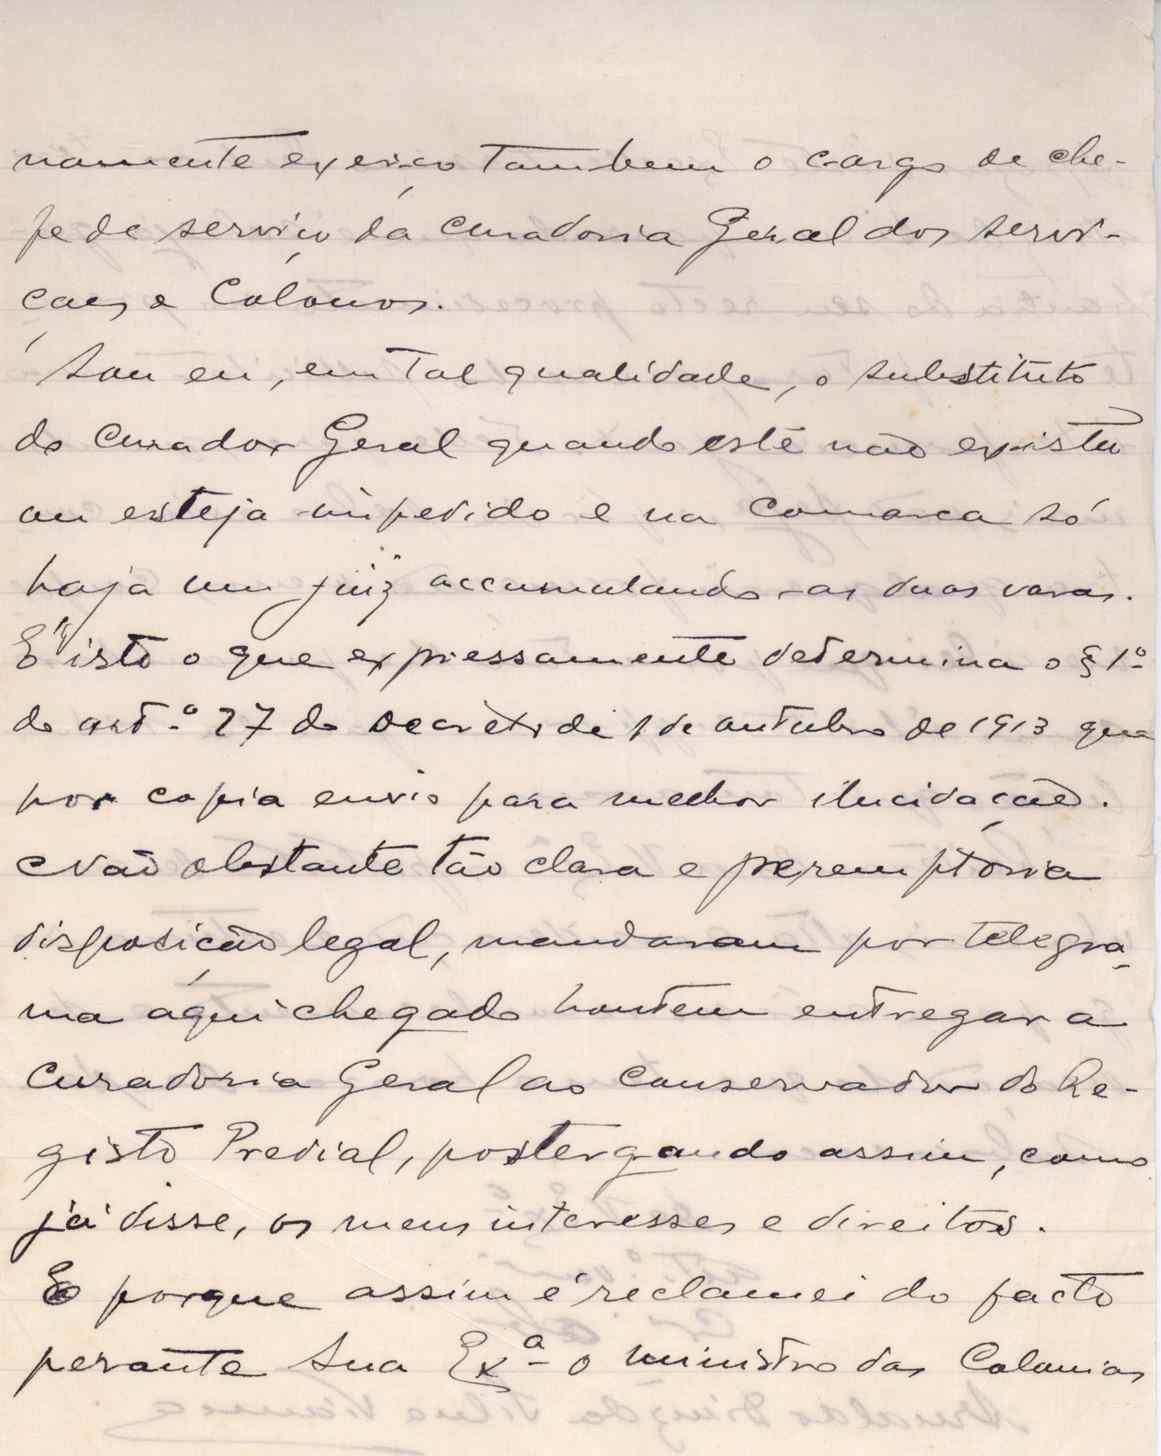 namente exerço tambem o cargo de che-
fe de serviço da Curadoria Geral dos servi-
çaes e Colonos.
Sou eu, em tal qualidade, o substituto
do Curador Geral quando este não exista
ou esteja impedido e na comarca só
haja um juiz accumulando as duas varas.
E' isto o que expressamente determina o § 1º
do artº 27 do Decreto de 1 de outubro de 1913 que
por copia envio para melhor ilucidação.
Não obstante tão clara e peremptória
disposição legal, mandaram por telegra-
ma aqui chegado hontem entregar a
Curadoria Geral ao conservador do Re-
gisto Predial, postergando assim, como
já disse, os meus interesses e direitos.
E porque assim é reclamei do facto
perante Sua Exª o ministro das Colonias